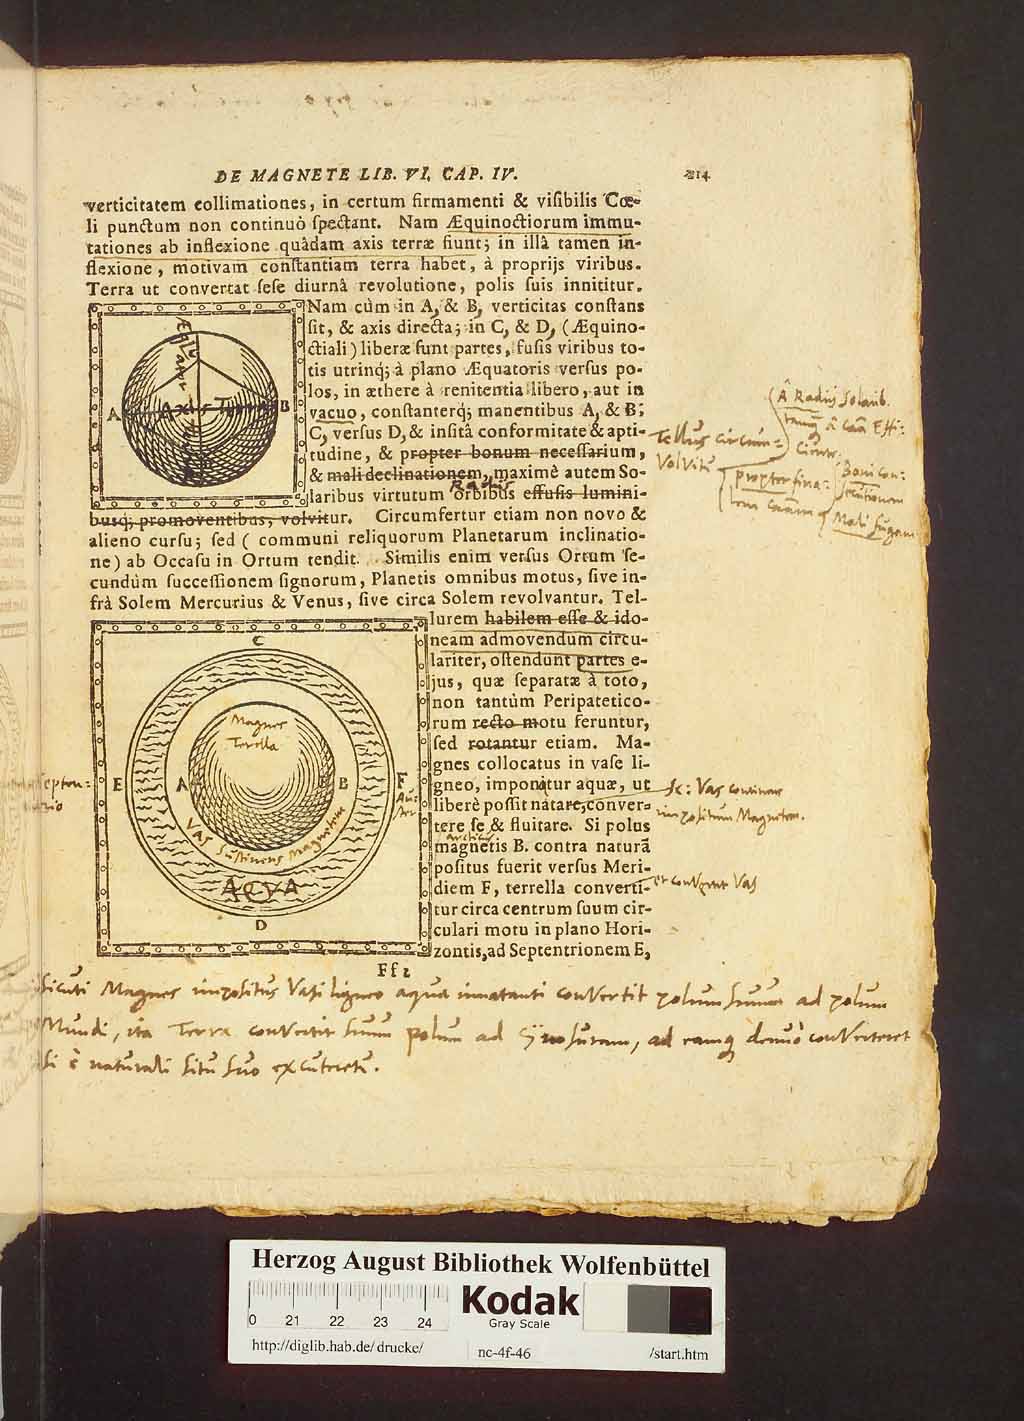 DE MAGNETE LIB. VI. CAP. IV.
214
verticitatem collimationes, in certum firmamenti & viſibilis Cœ-
li punctum non continuò ſpectant. Nam Æquinoctiorum immu-
tationes ab inflexione quâdam axis terræ fiunt; in illâ tamen in-
flexione, motivam conſtantiam terra habet, à proprijs viribus.
Terra ut convertat ſeſe diurnâ revolutione, polis ſuis innititur.
Nam cùm in A, & B, verticitas conſtans
ſit, & axis directa; in C, & D, (Æquino-
ctiali) liberæ ſunt partes, fuſis viribus to-
tis utrinq; à plano Æquatoris verſus po-
los, in æthere à renitentia libero, aut in
vacuo, conſtanterq; manentibus A, & B;
C, verſus D, & inſitâ conformitate & apti-
tudine, & propter bonum neceſſarium,
& mali declinationem, maximè autem So-
Radiis
laribus virtutum orbibus effuſis lumini-
buſq; promoventibus, volvitur. Circumfertur etiam non novo &
alieno curſu; ſed ( communi reliquorum Planetarum inclinatio-
ne) ab Occaſu in Ortum tendit. Similis enim verſus Ortum ſe-
cundùm ſucceſſionem ſignorum, Planetis omnibus motus, ſive in-
frà Solem Mercurius & Venus, ſive circa Solem revolvantur. Tel-
lurem habilem eſſe & ido-
neam ad movendum circu-
lariter, oſtendunt partes e-
jus, quæ ſeparatæ à toto,
non tantùm Peripatetico-
rum recto motu feruntur,
ſed rotantur etiam. Ma-
gnes collocatus in vaſe li-
gneo, imponitur aquæ, ut
liberè poſſit natare, conver-
tere ſe & fluitare. Si polus
arcticus
magnetis B. contra naturã
poſitus fuerit verſus Meri-
diem F, terrella converti-
tur circa centrum ſuum cir-
culari motu in plano Hori-
zontis, ad Septentrionem E,
Ff 2
A
Axis Terræ
B
C
E
A
B
F
D
Magnes
Terella
Vas ſuſtinens Magnetem
AQVA
Tellus circum-
volvitur
Â Radiis Solarib.
propter fina-
Boni con-
Mali fugam
ſc: Vas continens
impoſitum Magnetem.
et convertit Vas
ſicuti Magnes impoſitus Vaſi ligneo aquæ innatanti convertit polum ſuum ad polum
Mundi, ita Terra convertit ſuum polum ad Cynoſuram, ad eamq denuò converteret
ſi è naturali ſitu ſuo excuteretur.
Herzog August Bibliothek Wolfenbüttel
0 21 22 23 24
Kodak
Gray Scale
http://diglib.hab.de/drucke/
nc-4f-46
/start.htm